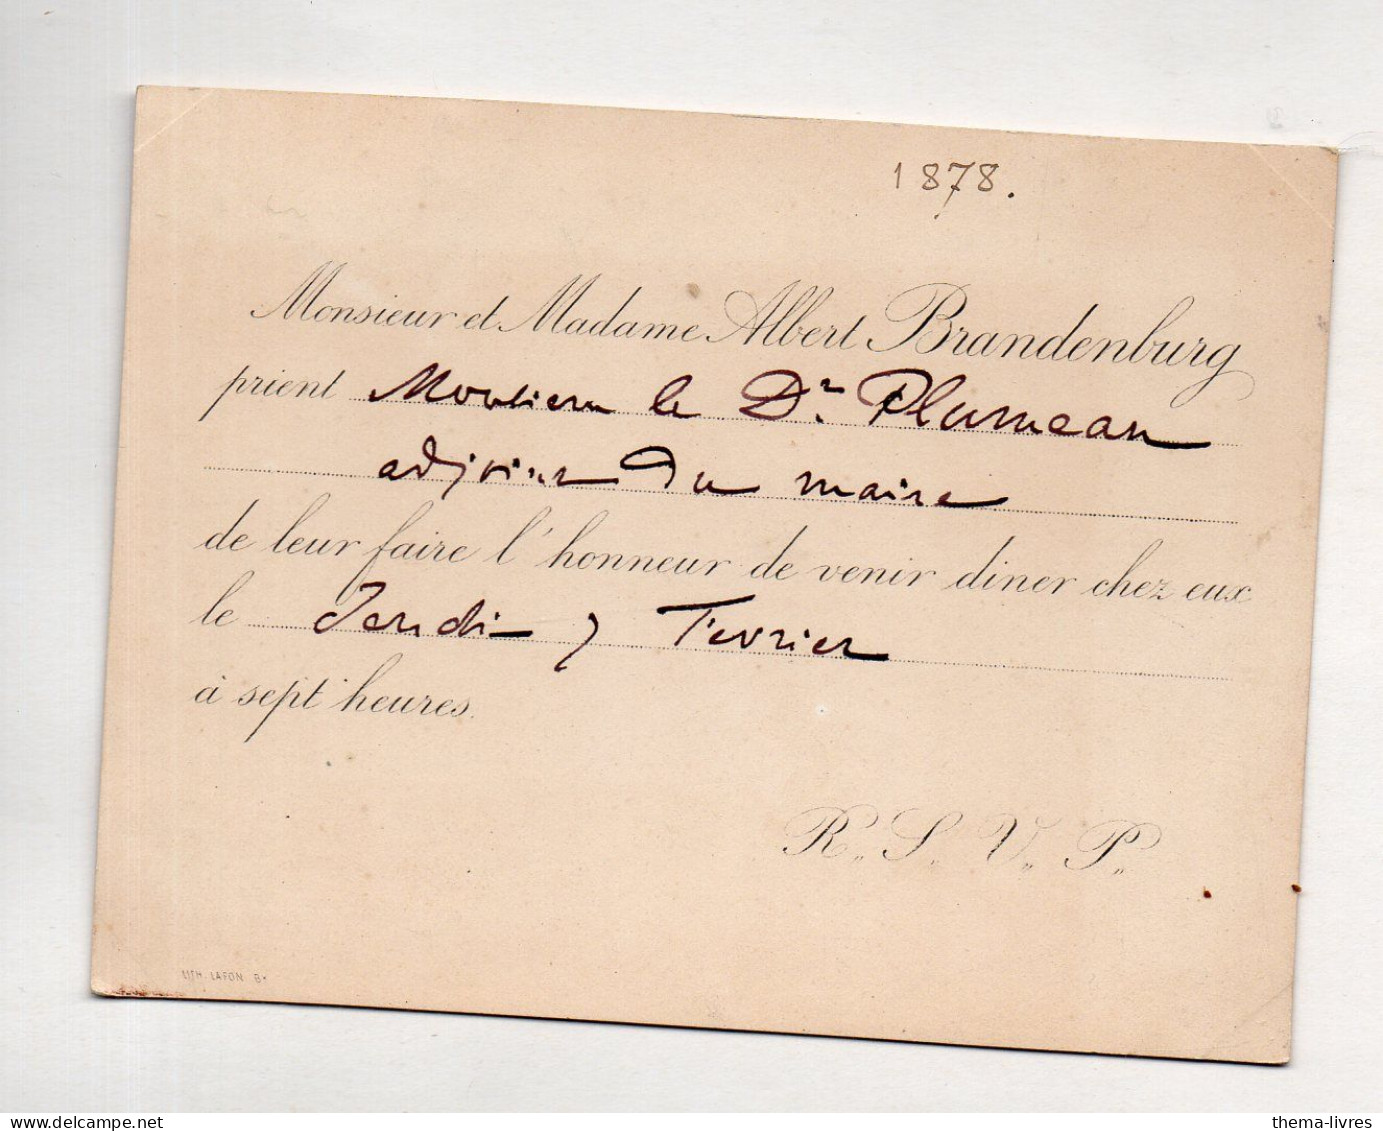 1878.
Monsieur et Madame Albert Brandenburg
prient Monsieur le Dr. Plumeau
adjoint du maire
de leur faire l'honneur de venir diner chez eux
le Jeudi 7 Fevrier
à sept heures.
R. S. V. P.
LITH. LAFON Bx
thema-livres